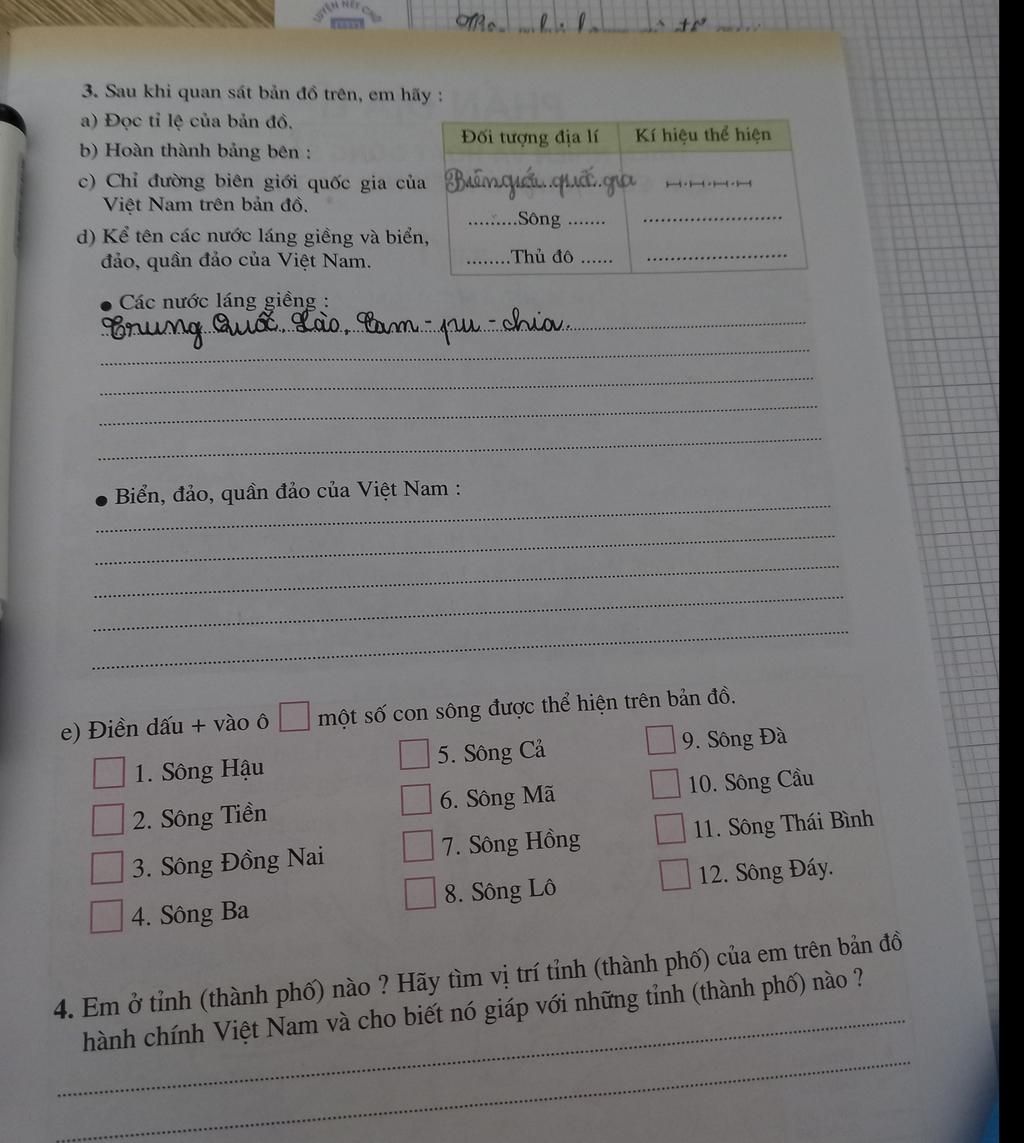 LUYỆN NÉT CHỮ
3. Sau khi quan sát bản đồ trên, em hãy :
a) Đọc tỉ lệ của bản đồ.
b) Hoàn thành bảng bên :
c) Chỉ đường biên giới quốc gia của
Việt Nam trên bản đồ.
d) Kể tên các nước láng giềng và biển,
đảo, quần đảo của Việt Nam.
Đối tượng địa lí Kí hiệu thể hiện
Biên giới quốc gia
.........Sông ....... ........................
........Thủ đô ...... ........................
● Các nước láng giềng :
Trung Quốc, Lào, Cam-pu-chia.
● Biển, đảo, quần đảo của Việt Nam :
e) Điền dấu + vào ô □ một số con sông được thể hiện trên bản đồ.
□ 1. Sông Hậu □ 5. Sông Cả □ 9. Sông Đà
□ 2. Sông Tiền □ 6. Sông Mã □ 10. Sông Cầu
□ 3. Sông Đồng Nai □ 7. Sông Hồng □ 11. Sông Thái Bình
□ 4. Sông Ba □ 8. Sông Lô □ 12. Sông Đáy.
4. Em ở tỉnh (thành phố) nào ? Hãy tìm vị trí tỉnh (thành phố) của em trên bản đồ
hành chính Việt Nam và cho biết nó giáp với những tỉnh (thành phố) nào ?